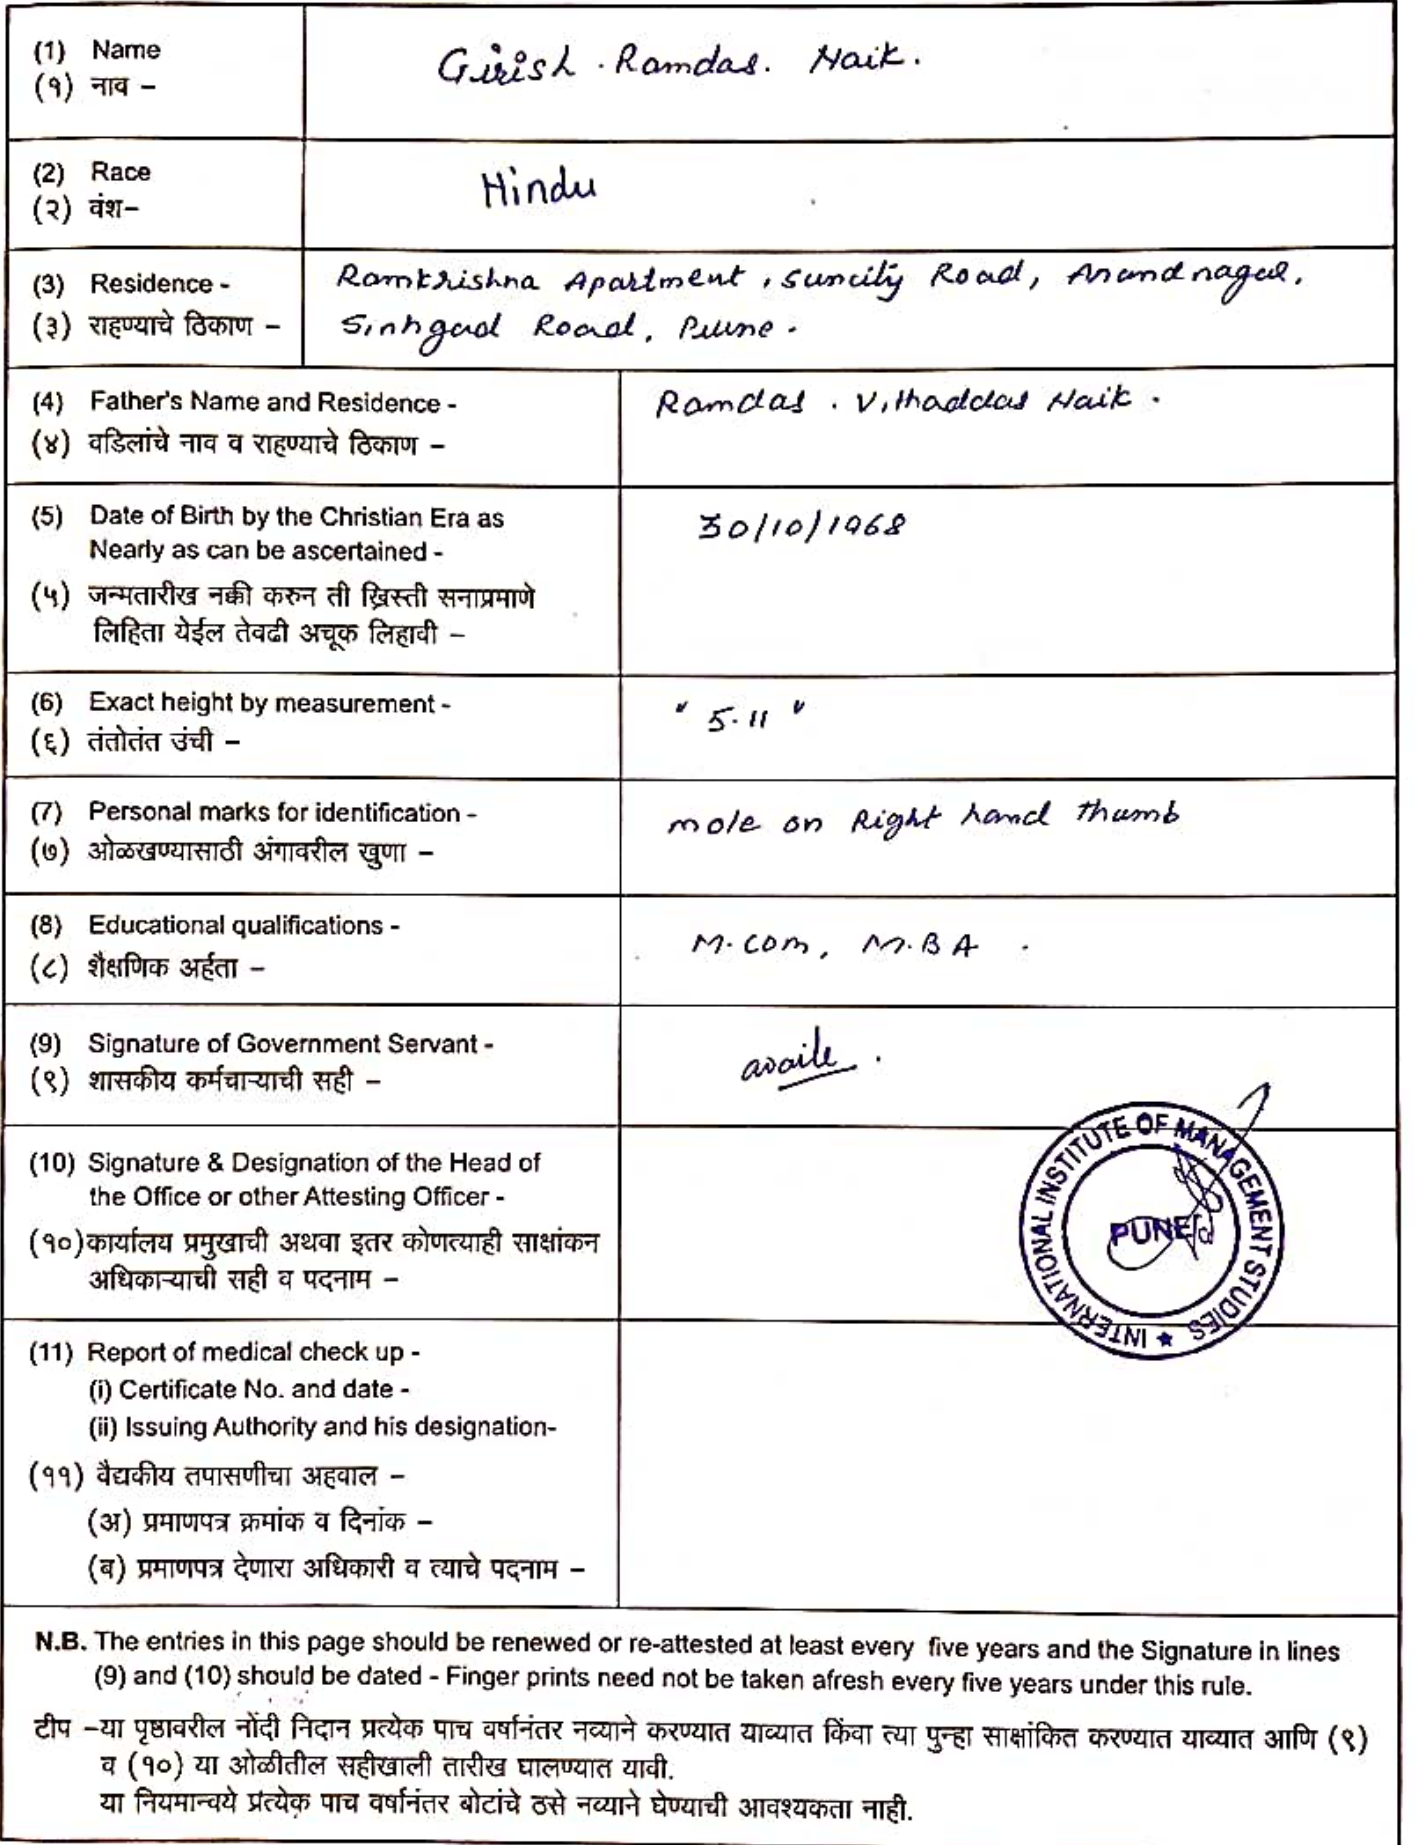 (1) Name
(१) नाव –
Girish . Ramdas. Naik.
(2) Race
(२) वंश–
Hindu
(3) Residence -
(३) राहण्याचे ठिकाण –
Ramkrishna Apartment, Suncity Road, Anandnagar,
Sinhgad Road, Pune.
(4) Father's Name and Residence -
(४) वडिलांचे नाव व राहण्याचे ठिकाण –
Ramdas . Vithaddas Naik .
(5) Date of Birth by the Christian Era as
Nearly as can be ascertained -
(५) जन्मतारीख नक्की करुन ती ख्रिस्ती सनाप्रमाणे
लिहिता येईल तेवढी अचूक लिहावी –
30/10/1968
(6) Exact height by measurement -
(६) तंतोतंत उंची –
" 5.11 "
(7) Personal marks for identification -
(७) ओळखण्यासाठी अंगावरील खुणा –
mole on Right hand thumb
(8) Educational qualifications -
(८) शैक्षणिक अर्हता –
M.com, M.BA .
(9) Signature of Government Servant -
(९) शासकीय कर्मचाऱ्याची सही –
(10) Signature & Designation of the Head of
the Office or other Attesting Officer -
(१०) कार्यालय प्रमुखाची अथवा इतर कोणत्याही साक्षांकन
अधिकाऱ्याची सही व पदनाम –
INTERNATIONAL INSTITUTE OF MANAGEMENT STUDIES ★
PUNE
(11) Report of medical check up -
(i) Certificate No. and date -
(ii) Issuing Authority and his designation-
(११) वैद्यकीय तपासणीचा अहवाल –
(अ) प्रमाणपत्र क्रमांक व दिनांक –
(ब) प्रमाणपत्र देणारा अधिकारी व त्याचे पदनाम –
N.B. The entries in this page should be renewed or re-attested at least every five years and the Signature in lines
(9) and (10) should be dated - Finger prints need not be taken afresh every five years under this rule.
टीप –या पृष्ठावरील नोंदी निदान प्रत्येक पाच वर्षानंतर नव्याने करण्यात याव्यात किंवा त्या पुन्हा साक्षांकित करण्यात याव्यात आणि (९)
व (१०) या ओळीतील सहीखाली तारीख घालण्यात यावी.
या नियमान्वये प्रत्येक पाच वर्षानंतर बोटांचे ठसे नव्याने घेण्याची आवश्यकता नाही.